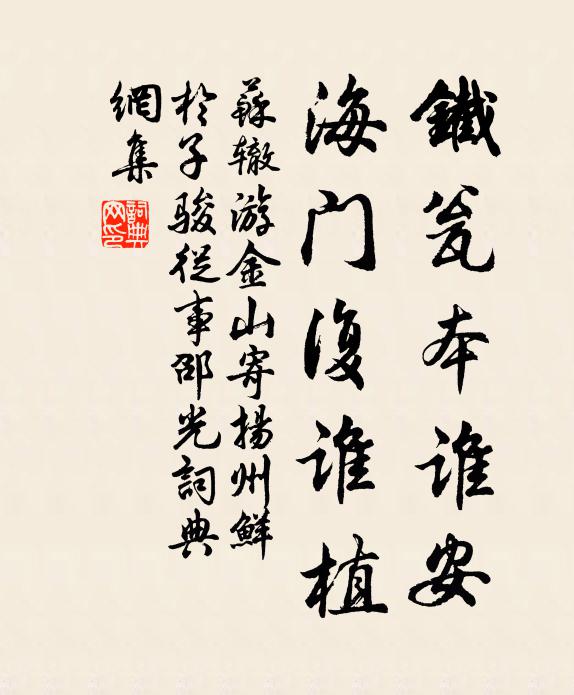 鐵瓮本谁安
海门復谁植
蘇辙游金山寄揚州鮮
於子骏從事邵光詞典
網集
詞典网印